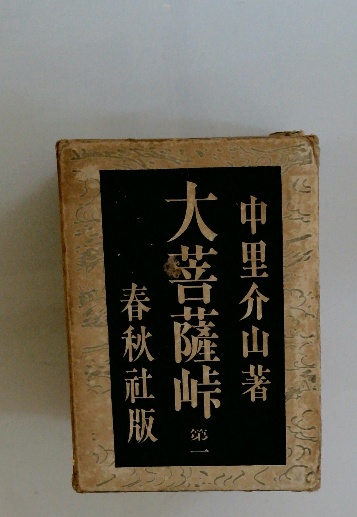 中里介山著
大菩薩峠 第一
春秋社版